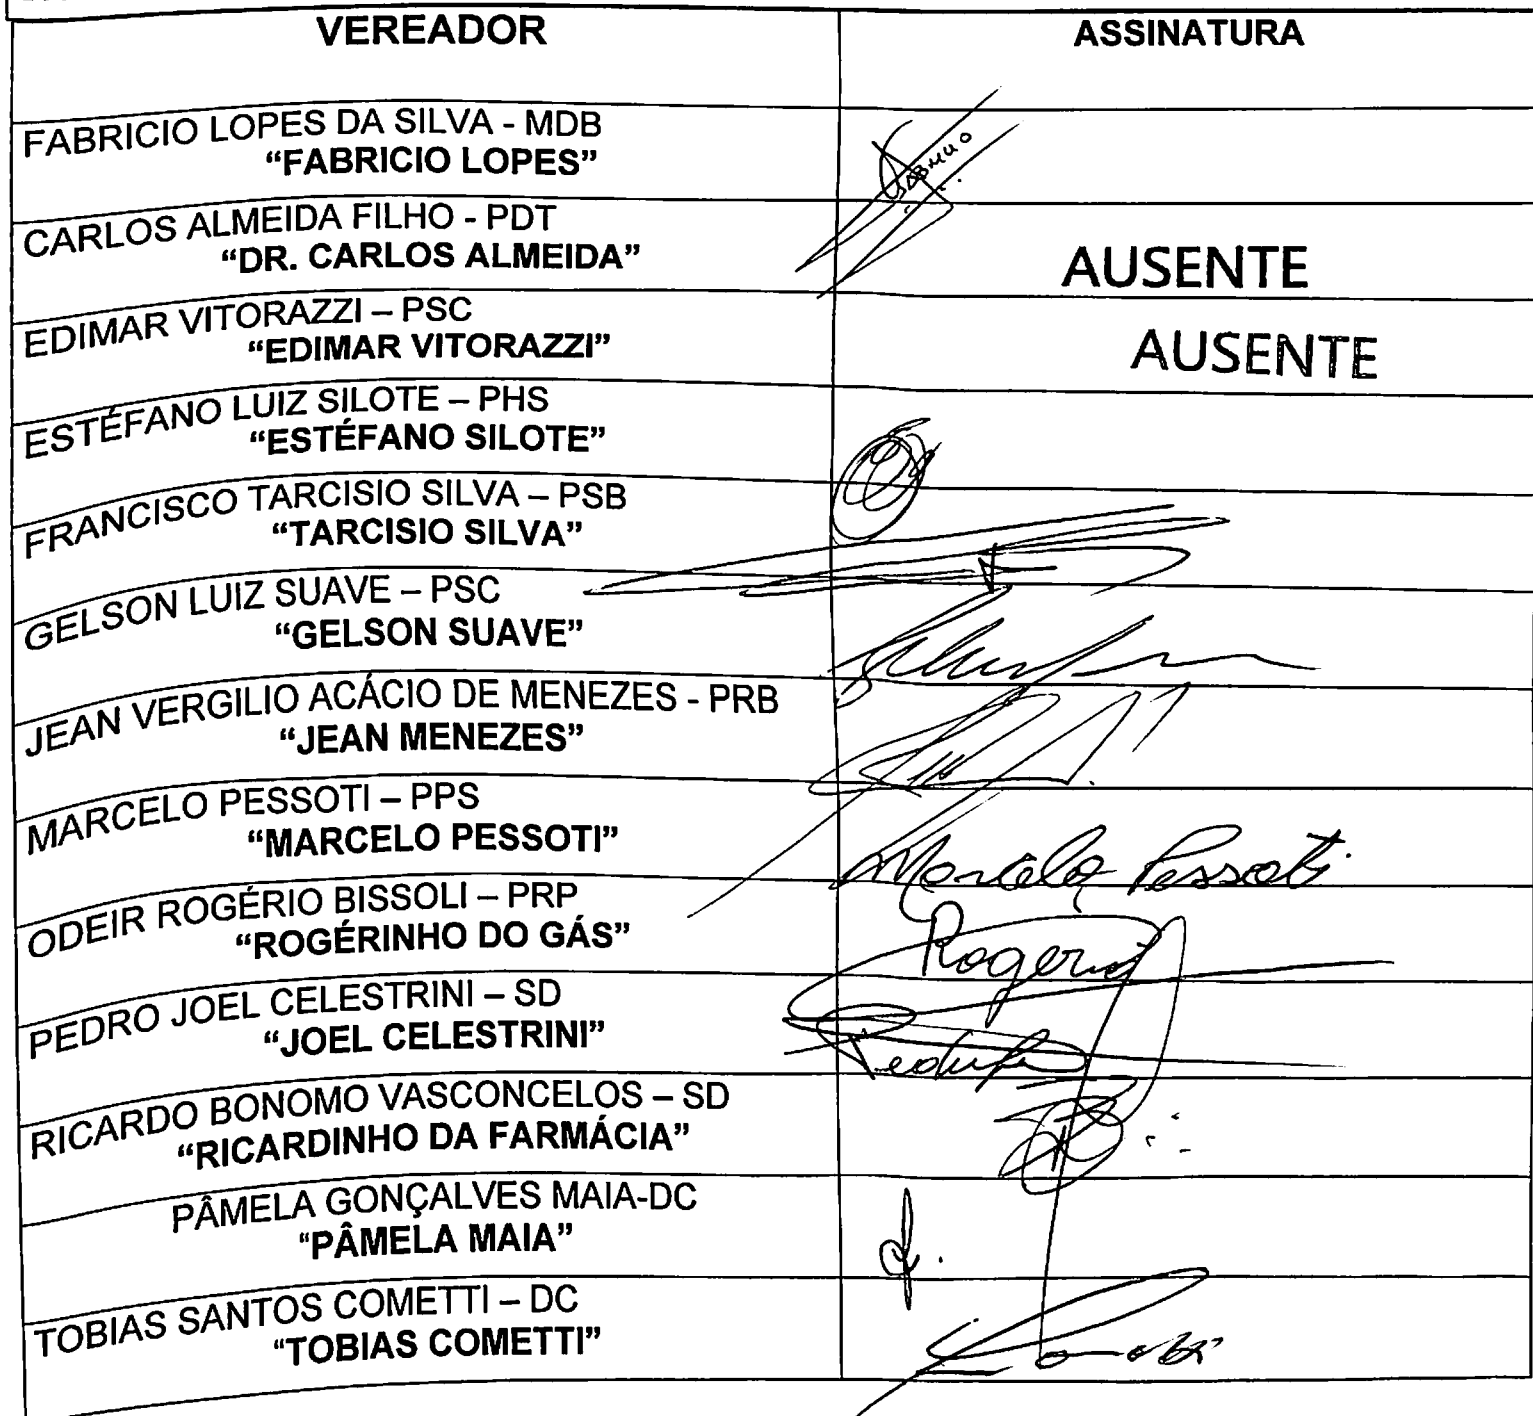 VEREADOR
ASSINATURA
FABRICIO LOPES DA SILVA - MDB
“FABRICIO LOPES”
CARLOS ALMEIDA FILHO - PDT
“DR. CARLOS ALMEIDA”
AUSENTE
EDIMAR VITORAZZI – PSC
“EDIMAR VITORAZZI”
AUSENTE
ESTÉFANO LUIZ SILOTE – PHS
“ESTÉFANO SILOTE”
FRANCISCO TARCISIO SILVA – PSB
“TARCISIO SILVA”
GELSON LUIZ SUAVE – PSC
“GELSON SUAVE”
JEAN VERGILIO ACÁCIO DE MENEZES - PRB
“JEAN MENEZES”
MARCELO PESSOTI – PPS
“MARCELO PESSOTI”
Marcelo Pessoti
ODEIR ROGÉRIO BISSOLI – PRP
“ROGÉRINHO DO GÁS”
Rogerio
PEDRO JOEL CELESTRINI – SD
“JOEL CELESTRINI”
RICARDO BONOMO VASCONCELOS – SD
“RICARDINHO DA FARMÁCIA”
PÂMELA GONÇALVES MAIA-DC
“PÂMELA MAIA”
TOBIAS SANTOS COMETTI – DC
“TOBIAS COMETTI”